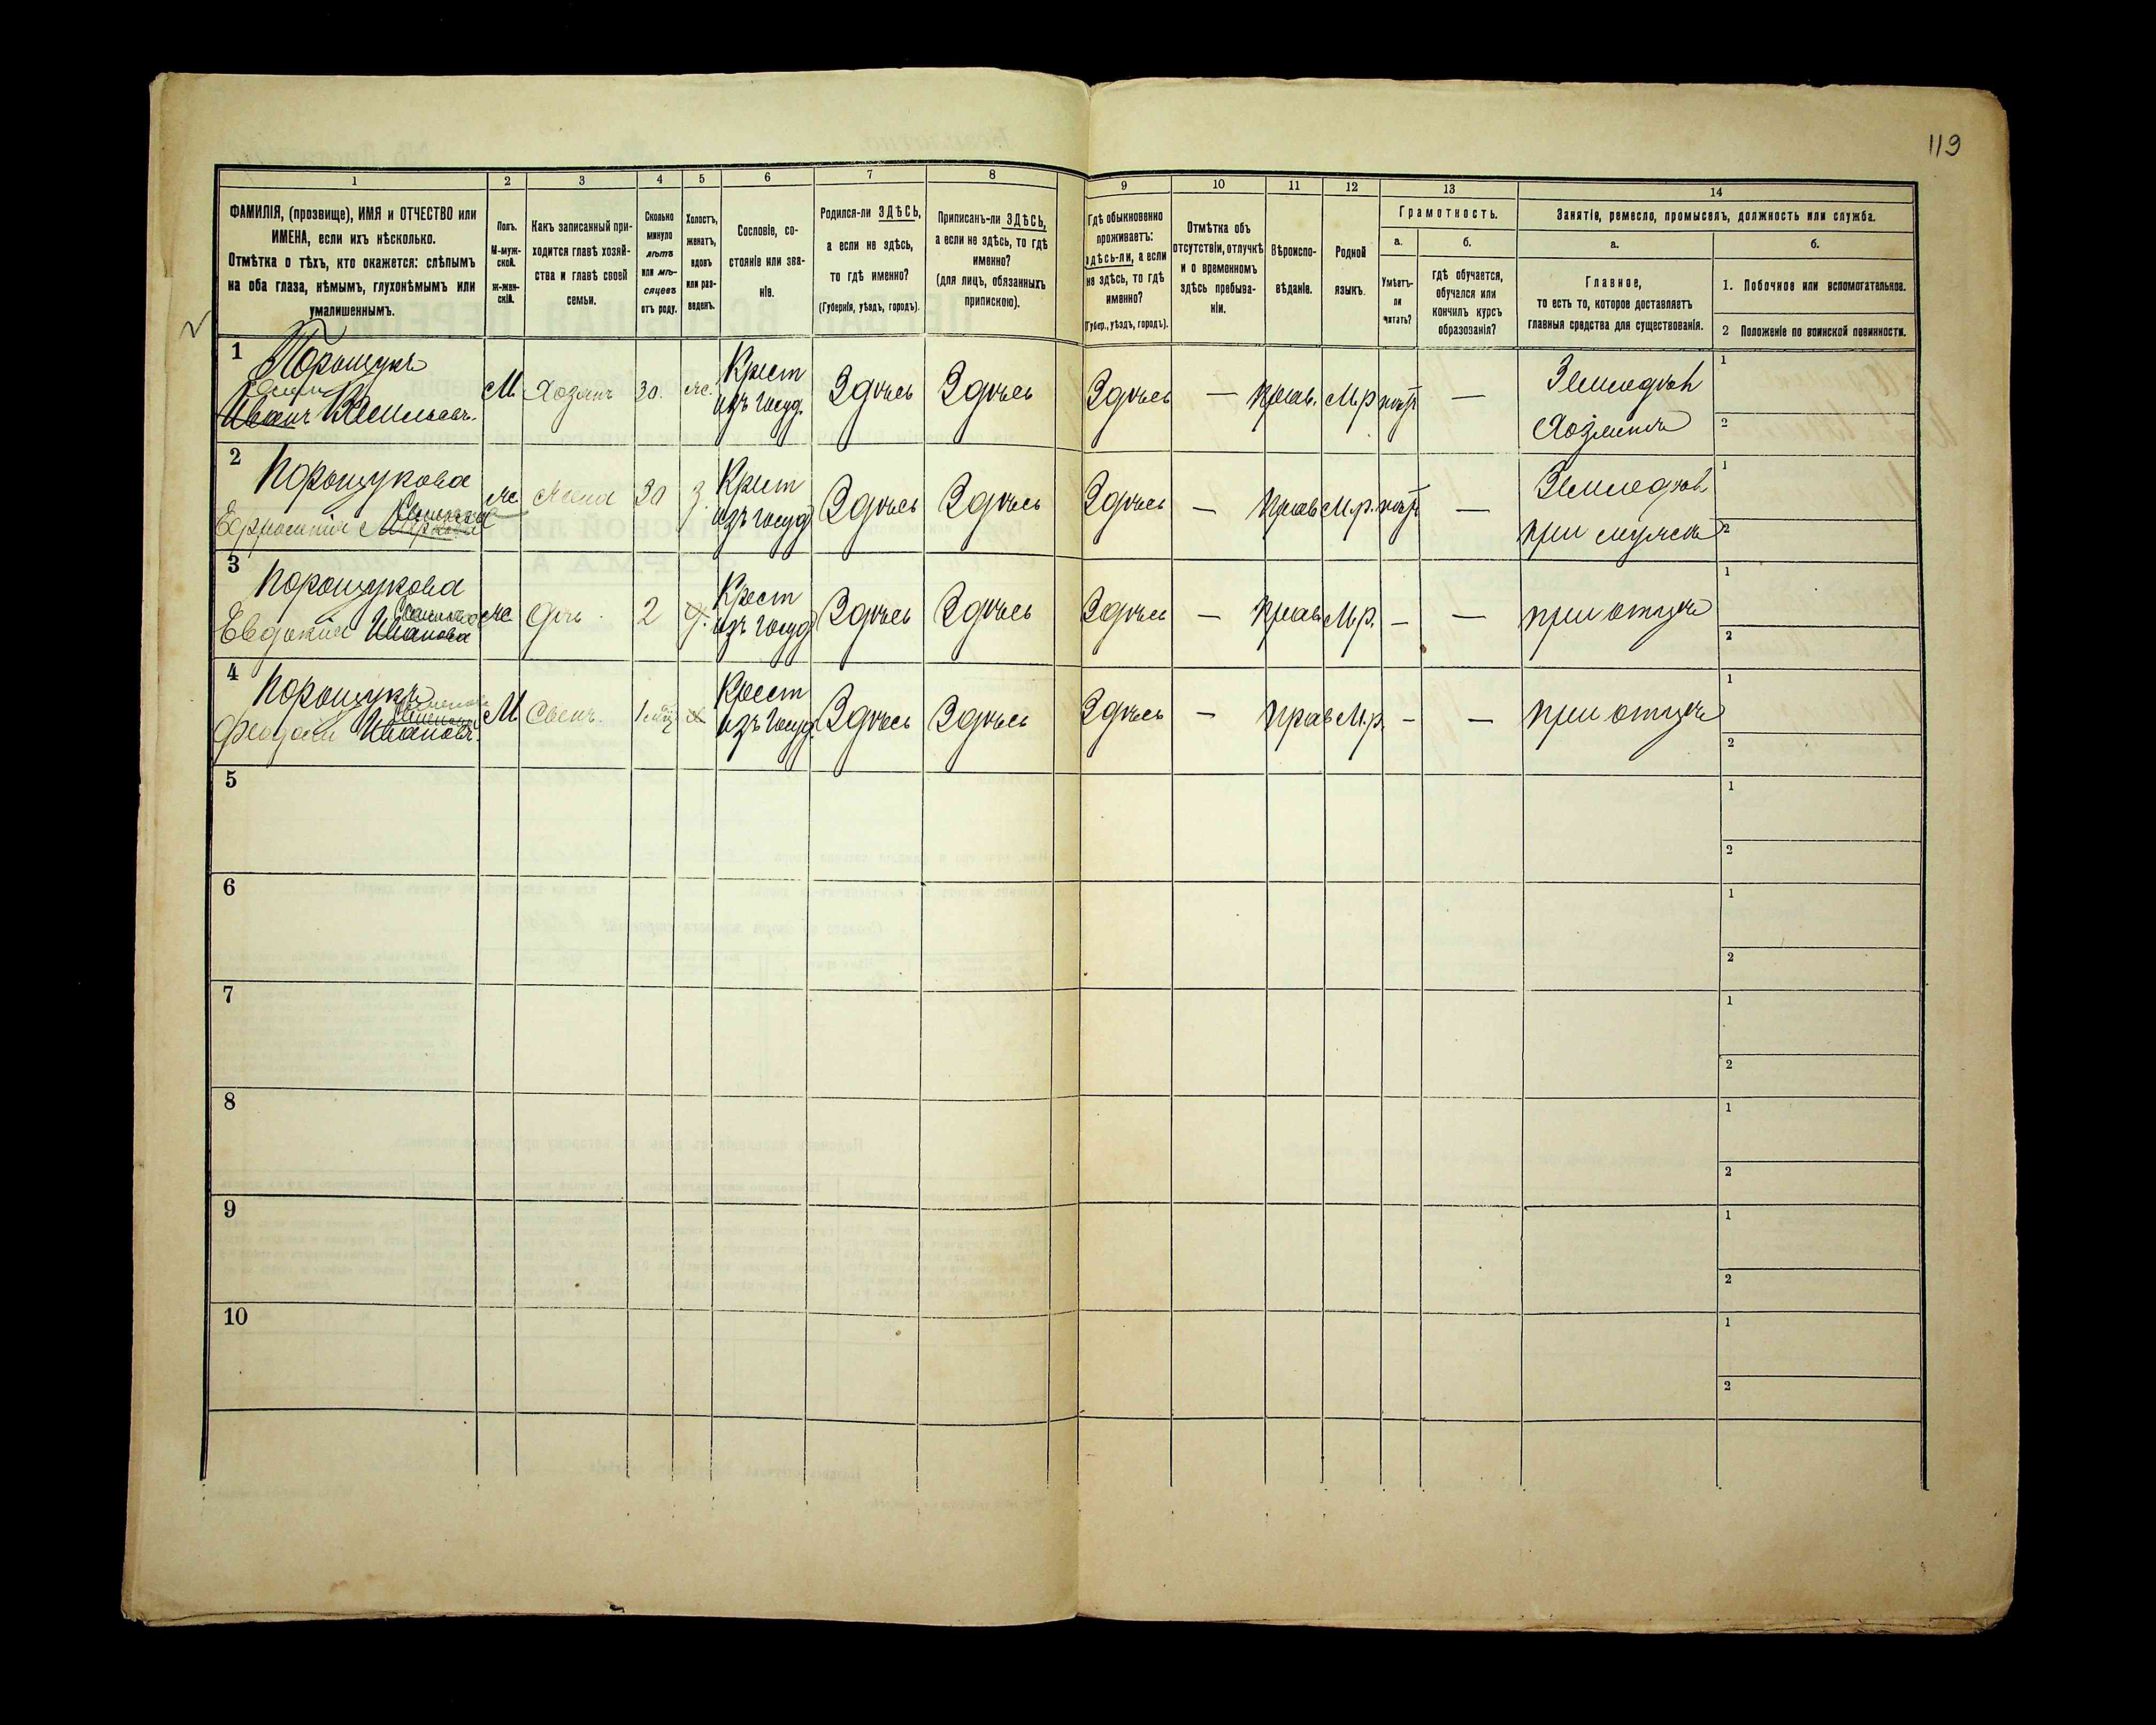 119
1
2
3
4
5
6
7
8
9
10
11
12
13
14
ФАМИЛІЯ, (прозвище), ИМЯ и ОТЧЕСТВО или
ИМЕНА, если ихъ нѣсколько.
Отмѣтка о тѣхъ, кто окажется: слѣпымъ
на оба глаза, нѣмымъ, глухонѣмымъ или
умалишеннымъ.
Полъ.
М-муж-
ской.
Ж-жен-
скій.
Какъ записанный при-
ходится главѣ хозяй-
ства и главѣ своей
семьи.
Сколько
минуло
лѣтъ
или мѣ-
сяцевъ
отъ роду.
Холостъ,
женатъ,
вдовъ
или раз-
веденъ.
Сословіе, со-
стояніе или зва-
ніе.
Родился-ли ЗДѢСЬ,
а если не здѣсь,
то гдѣ именно?
(Губернія, уѣздъ, городъ).
Приписанъ-ли ЗДѢСЬ,
а если не здѣсь, то гдѣ
именно?
(для лицъ, обязанныхъ
припискою).
Гдѣ обыкновенно
проживаетъ:
здѣсь-ли, а если
не здѣсь, то гдѣ
именно?
(Губер., уѣздъ, городъ).
Отмѣтка объ
отсутствіи, отлучкѣ
и о временномъ
здѣсь пребыва-
ніи.
Вѣроиспо-
вѣданіе.
Родной
языкъ.
Грамотность.
а.
Умѣетъ-
ли
читать?
б.
гдѣ обучается,
обучался или
кончилъ курсъ
образованія?
Занятіе, ремесло, промыселъ, должность или служба.
а.
Главное,
то есть то, которое доставляетъ
главныя средства для существованія.
б.
1. Побочное или вспомогательное.
2 Положеніе по воинской повинности.
1
Порощукъ
Иванъ Васильевъ.
М. Хозяинъ 30. же. Крест
изъ госуд. Здѣсь Здѣсь Здѣсь — прав. М.р нѣтъ — Земледѣл
Хозяинъ
1
2
2
Порощукова
Ефросинія Маркова
же Жена 30 з. Крест
изъ госуд Здѣсь Здѣсь Здѣсь — прав М.р. нѣтъ — Земледѣл
при мужѣ
1
2
3
Порощукова
Евдокія Иванова
же дочь 2 Крест
изъ госуд Здѣсь Здѣсь Здѣсь — прав М.р. — — при отцѣ
1
2
4
Порощукъ
Ивановъ.
М Сынъ. 1 Крест
изъ Госуд. Здѣсь Здѣсь Здѣсь — прав М.р. — — при отцѣ
1
2
5
1
2
6
1
2
7
1
2
8
1
2
9
1
2
10
1
2